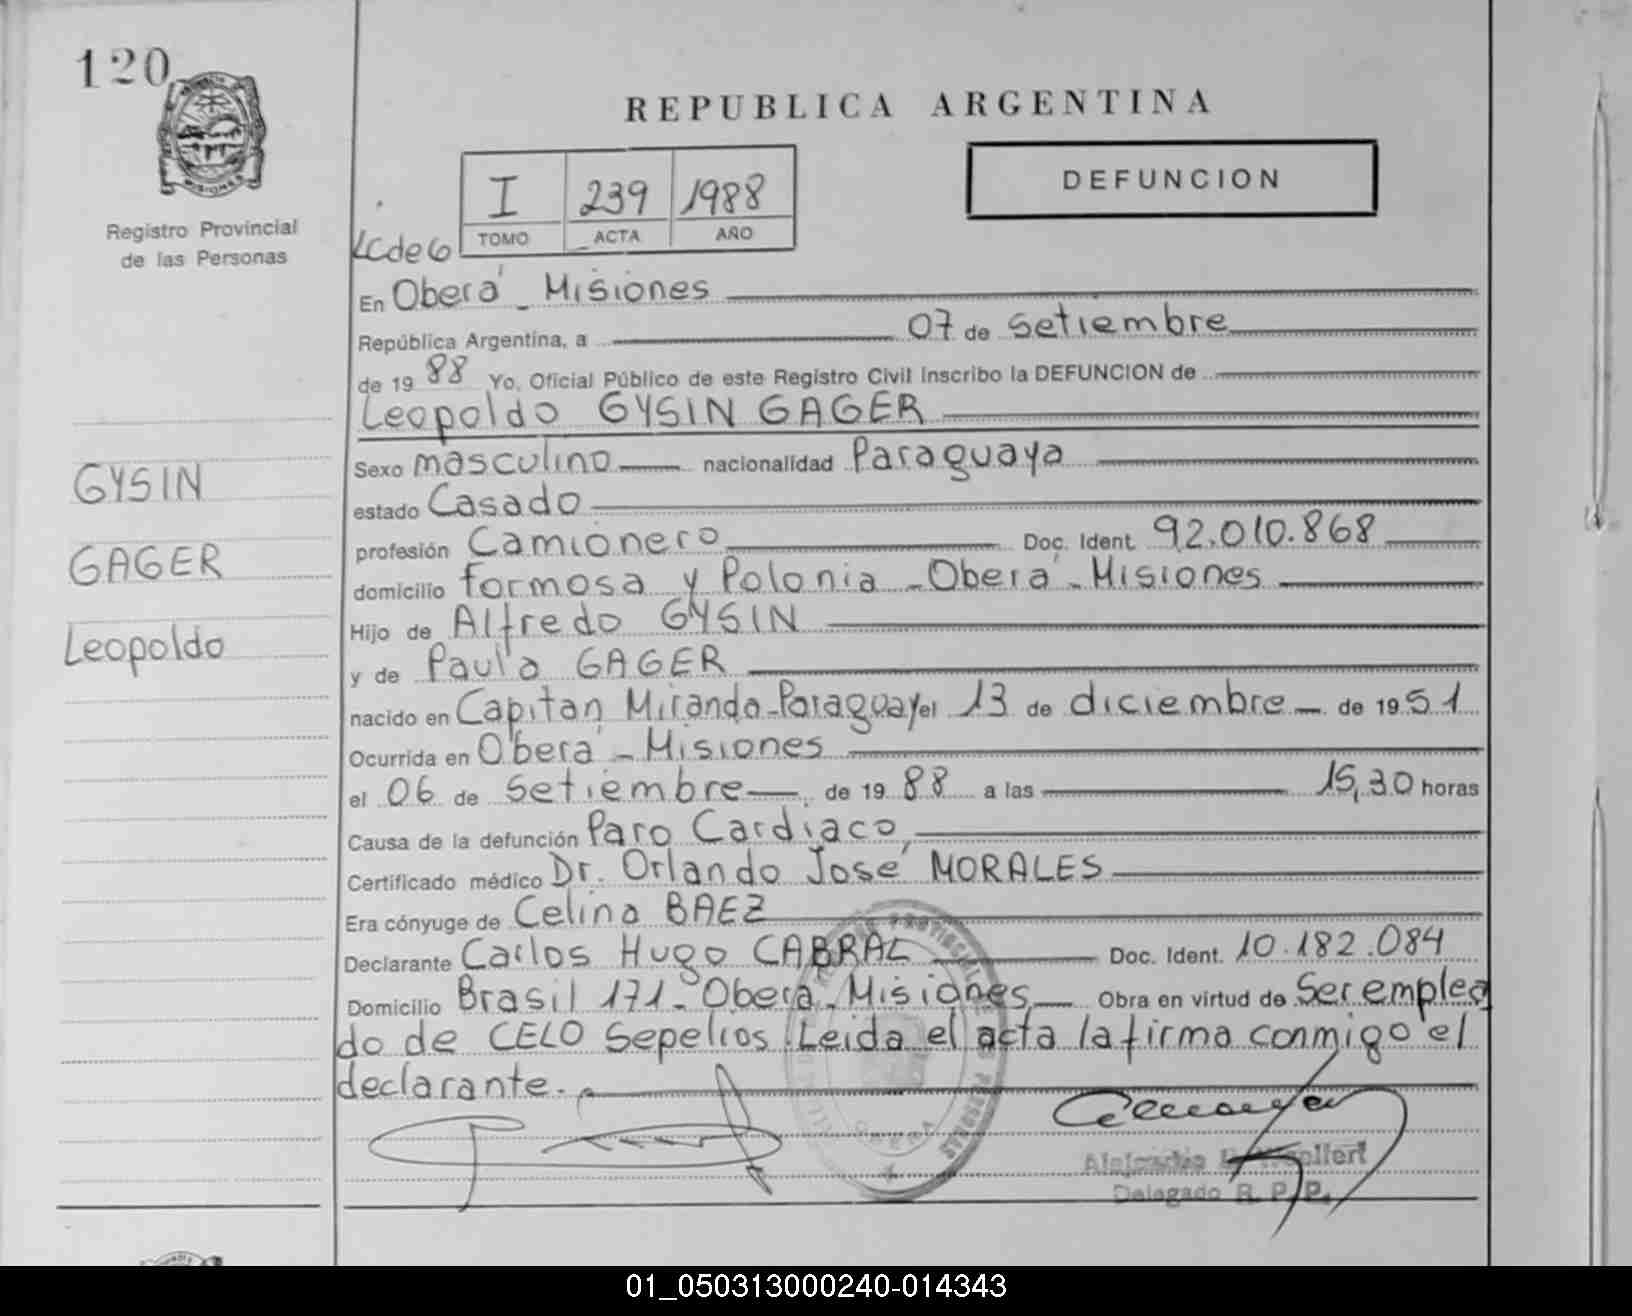 120
MISIONES
Registro Provincial
de las Personas
REPUBLICA ARGENTINA
DEFUNCION
I 239 1988
TOMO ACTA AÑO
En Oberá - Misiones
República Argentina, a 07 de Setiembre
de 19 88 Yo, Oficial Público de este Registro Civil Inscribo la DEFUNCION de
Leopoldo GYSIN GAGER
GYSIN
GAGER
Leopoldo
Sexo masculino nacionalidad Paraguaya
estado Casado
profesión Camionero Doc. Ident. 92.010.868
domicilio formosa y Polonia - Oberá - Misiones
Hijo de Alfredo GYSIN
y de Paula GAGER
nacido en Capitan Miranda - Paraguay el 13 de diciembre de 19 51
Ocurrida en Oberá - Misiones
el 06 de Setiembre de 19 88 a las 15,30 horas
Causa de la defunción Paro Cardiaco
Certificado médico Dr. Orlando José MORALES
Era cónyuge de Celina BAEZ
Declarante Carlos Hugo CABRAL Doc. Ident. 10.182.084
Domicilio Brasil 171 - Oberá - Misiones Obra en virtud de Ser emplea
do de CELO Sepelios. Leida el acta la firma conmigo el
declarante.
OBERA
Delegado R. P. P.
01_050313000240-014343